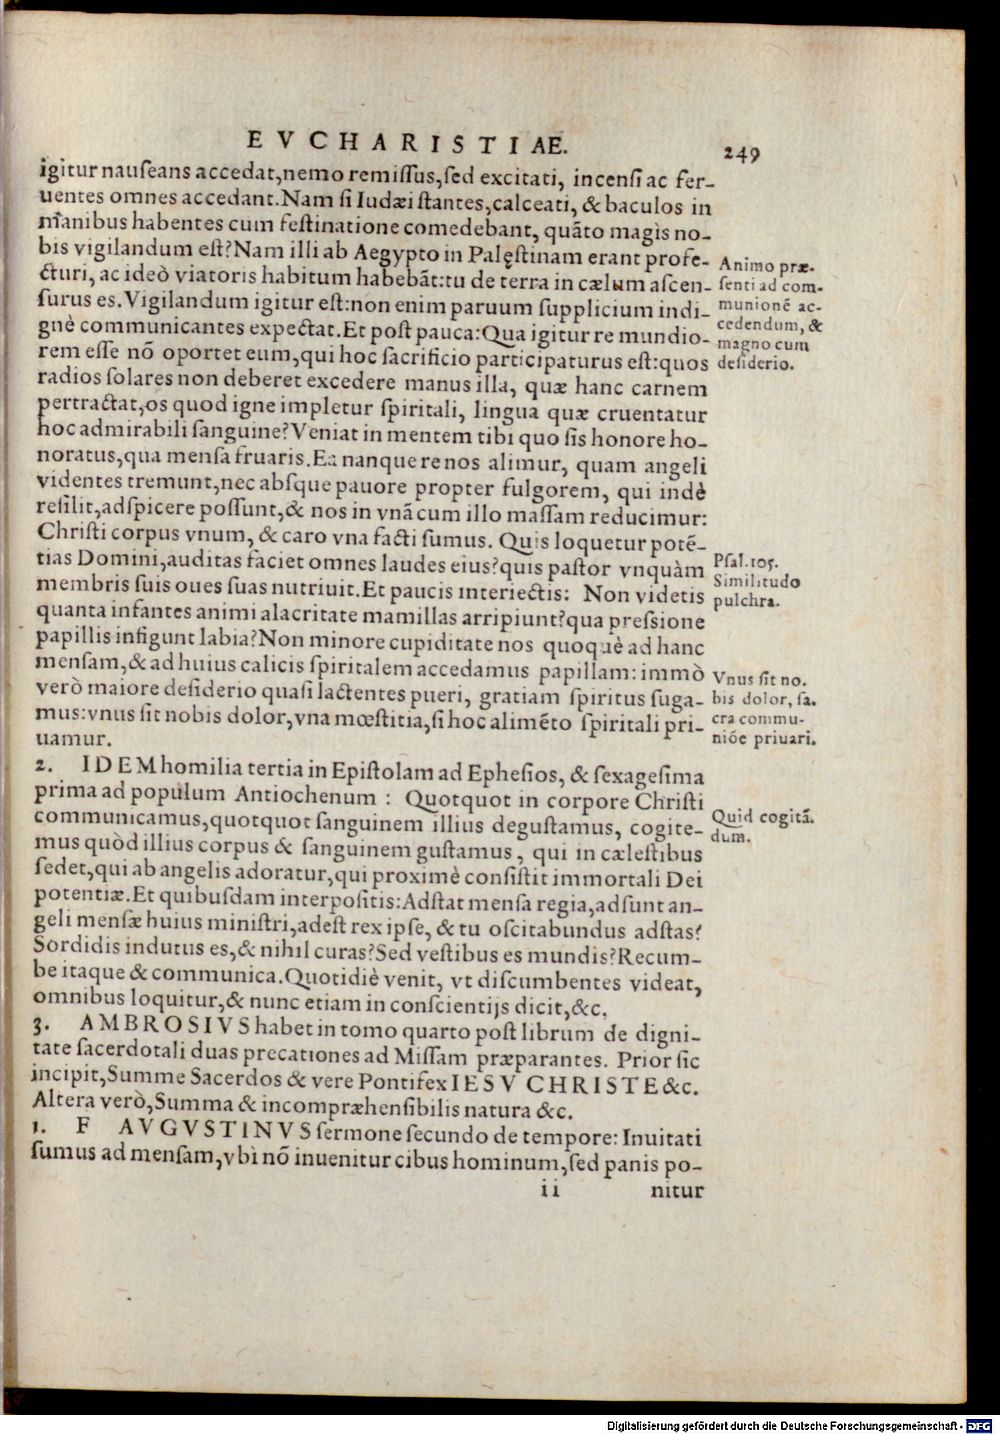 EVCHARISTIAE.
249
igitur nauſeans accedat,nemo remiſſus,ſed excitati, incenſi ac fer-
uentes omnes accedant.Nam ſi Iudæi ſtantes,calceati, & baculos in
manibus habentes cum feſtinatione comedebant, quāto magis no-
bis vigilandum eſt?Nam illi ab Aegypto in Palęſtinam erant profe-
cturi, ac ideò viatoris habitum habebāt:tu de terra in cælum aſcen-
ſurus es.Vigilandum igitur eſt:non enim paruum ſupplicium indi-
gnè communicantes expectat.Et poſt pauca:Qua igitur re mundio-
rem eſſe nō oportet eum,qui hoc ſacrificio participaturus eſt:quos
radios ſolares non deberet excedere manus illa, quæ hanc carnem
pertractat,os quod igne impletur ſpiritali, lingua quæ cruentatur
hoc admirabili ſanguine?Veniat in mentem tibi quo ſis honore ho-
noratus,qua menſa fruaris.Ea nanque re nos alimur, quam angeli
videntes tremunt,nec abſque pauore propter fulgorem, qui indè
reſilit,adſpicere poſſunt,& nos in vnā cum illo maſſam reducimur:
Chriſti corpus vnum, & caro vna facti ſumus. Quis loquetur potē-
tias Domini,auditas faciet omnes laudes eius?quis paſtor vnquàm
membris ſuis oues ſuas nutriuit.Et paucis interiectis: Non videtis
quanta infantes animi alacritate mamillas arripiunt?qua preſſione
papillis infigunt labia?Non minore cupiditate nos quoquè ad hanc
menſam,& ad huius calicis ſpiritalem accedamus papillam: immò
verò maiore deſiderio quaſi lactentes pueri, gratiam ſpiritus ſuga-
mus:vnus ſit nobis dolor,vna mœſtitia,ſi hoc alimēto ſpiritali pri-
uamur.
2. IDEM homilia tertia in Epiſtolam ad Epheſios, & ſexageſima
prima ad populum Antiochenum : Quotquot in corpore Chriſti
communicamus,quotquot ſanguinem illius deguſtamus, cogite-
mus quòd illius corpus & ſanguinem guſtamus, qui in cæleſtibus
ſedet,qui ab angelis adoratur,qui proximè conſiſtit immortali Dei
potentiæ.Et quibuſdam interpoſitis:Adſtat menſa regia,adſunt an-
geli menſæ huius miniſtri,adeſt rex ipſe, & tu oſcitabundus adſtas?
Sordidis indutus es,& nihil curas?Sed veſtibus es mundis?Recum-
be itaque & communica.Quotidiè venit, vt diſcumbentes videat,
omnibus loquitur,& nunc etiam in conſcientijs dicit,&c.
3. AMBROSIVS habet in tomo quarto poſt librum de digni-
tate ſacerdotali duas precationes ad Miſſam præparantes. Prior ſic
incipit,Summe Sacerdos & vere Pontifex IESV CHRISTE &c.
Altera verò,Summa & incompræhenſibilis natura &c.
1. F AVGVSTINVS ſermone ſecundo de tempore: Inuitati
ſumus ad menſam,vbi nō inuenitur cibus hominum,ſed panis po-
ii nitur
Animo præ-
ſenti ad com-
munionē ac-
cedendum, &
magno cum
deſiderio.
Pſal.105.
Similitudo
pulchra.
Vnus ſit no.
bis dolor, ſa.
cra commu-
niōe priuari.
Quid cogitā.
dum.
Digitalisierung gefördert durch die Deutsche Forschungsgemeinschaft - DFG